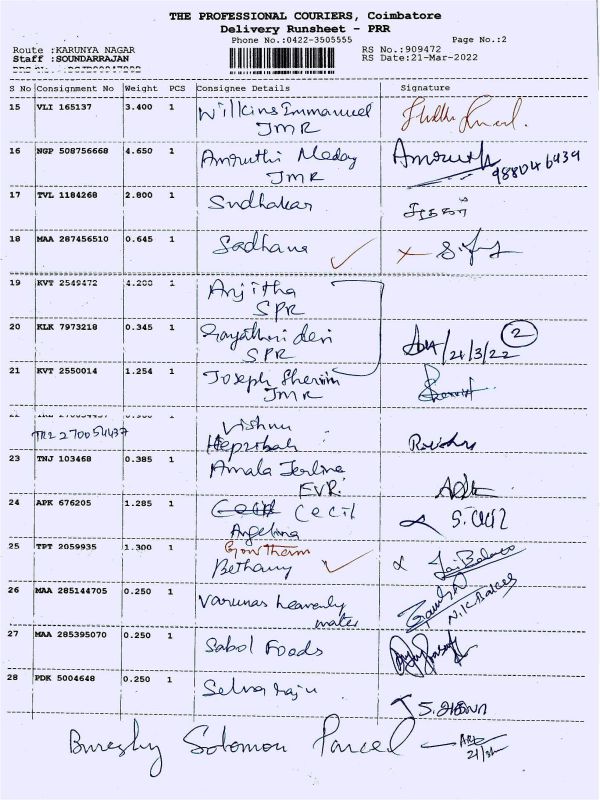 THE PROFESSIONAL COURIERS, Coimbatore
Delivery Runsheet - PRR
Phone No.:0422-3505555 Page No.:2
Route :KARUNYA NAGAR RS No.:909472
Staff :SOUNDARRAJAN RS Date:21-Mar-2022
S No Consignment No Weight PCS Consignee Details Signature
15 VLI 165137 3.400 1 Wilkins Immanuel
JMR
16 NGP 508756668 4.650 1 Amruthi Meday Amruth
JMR 988046939
17 TVL 1184268 2.800 1 Sudhakar
18 MAA 287456510 0.645 1 Sadhana
19 KVT 2549472 4.200 1 Anjitha
SPR
20 KLK 7973218 0.345 1 Gayathri devi 2
SPR 21/3/22
21 KVT 2550014 1.254 1 Joseph Sherin
JMR
22 Vishnu
TRZ 270054437 Hepzibah
23 TNJ 103468 0.385 1 Amala Jerline
EVR
24 APK 676205 1.285 1 Cecil
Angelina
25 TPT 2059935 1.300 1 Gowtham
Bethany
26 MAA 285144705 0.250 1 Varunas heavenly
water
27 MAA 285395070 0.250 1 Sabol Foods
28 PDK 5004648 0.250 1 Selvaraju
Solomon Parcel